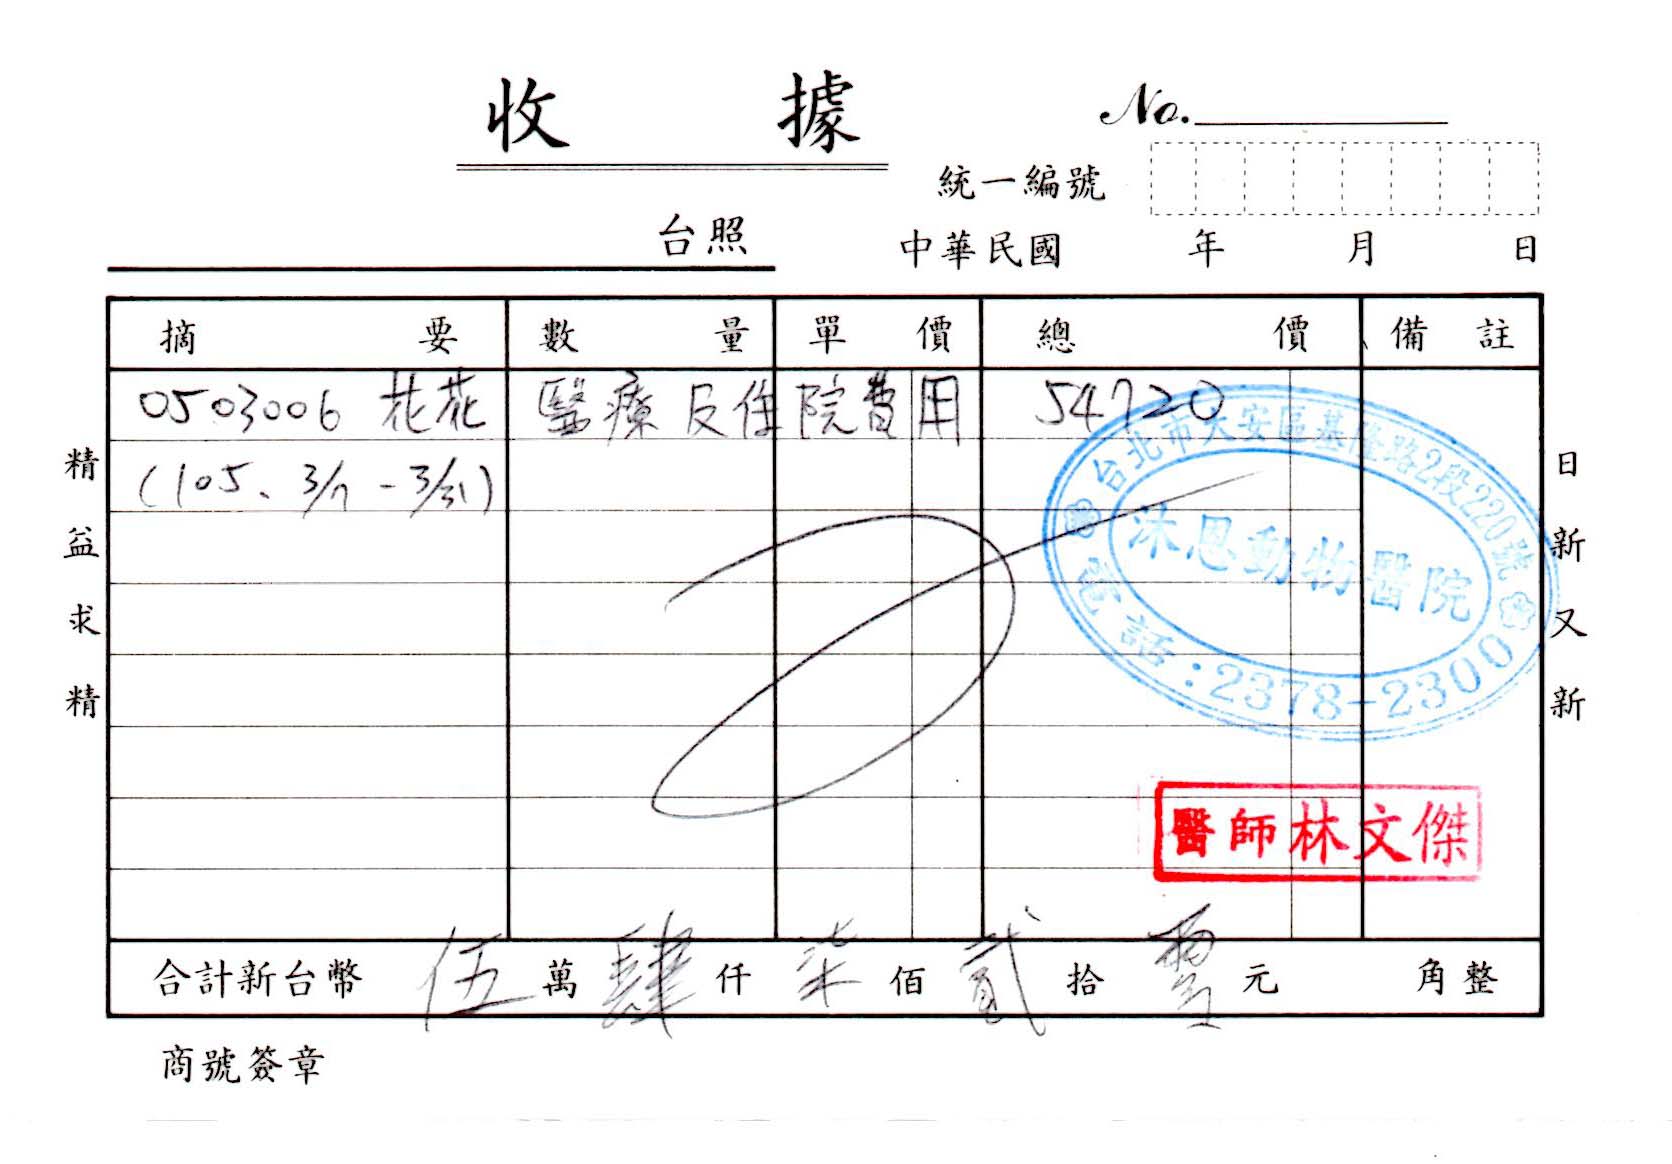 收據
No.
統一編號
台照
中華民國 年 月 日
摘要 數量 單價 總價 備註
0503006 花花 醫療及住院費用 54720
(105、3/7-3/31)
精益求精
日新又新
台北市大安區基隆路2段220號
沐恩動物醫院
電話:2378-2300
醫師林文傑
合計新台幣 伍萬肆仟柒佰貳拾零元 角整
商號簽章